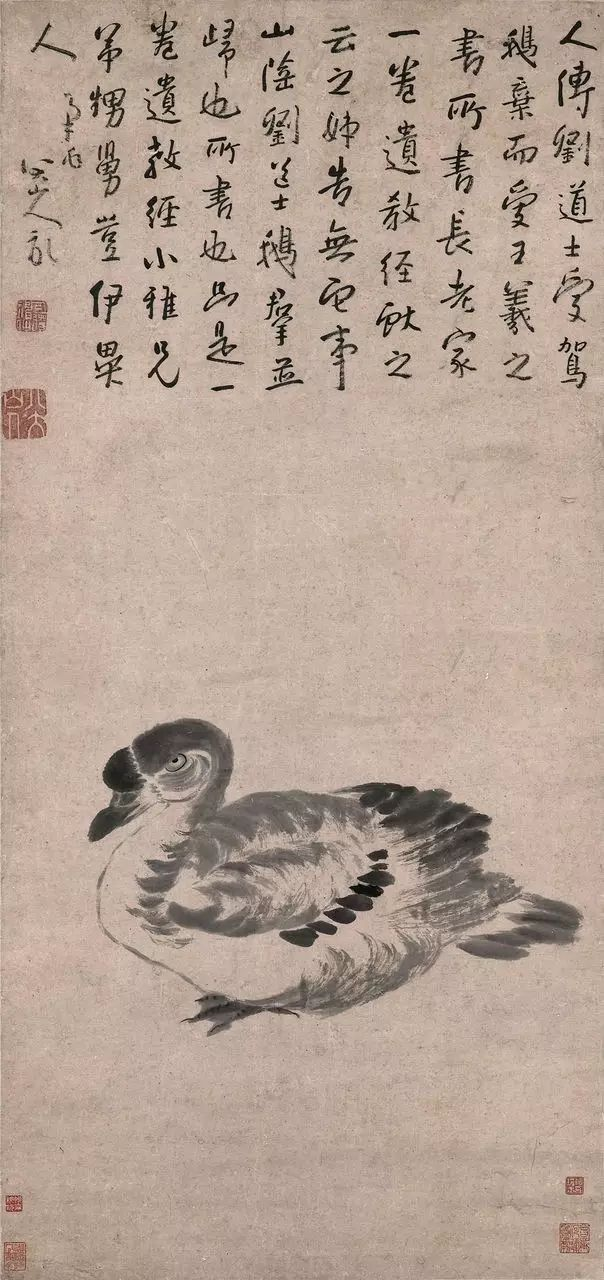 人傳劉道士愛駕
鵝棄而愛王羲之
書所書長老家
一卷遺教經獻之
云之姊告無它事
山陰劉道士鵝群並
歸也所書也只是一
卷遺教經小雅兄
弟甥舅豈伊異
人
八大山人記
八大山人